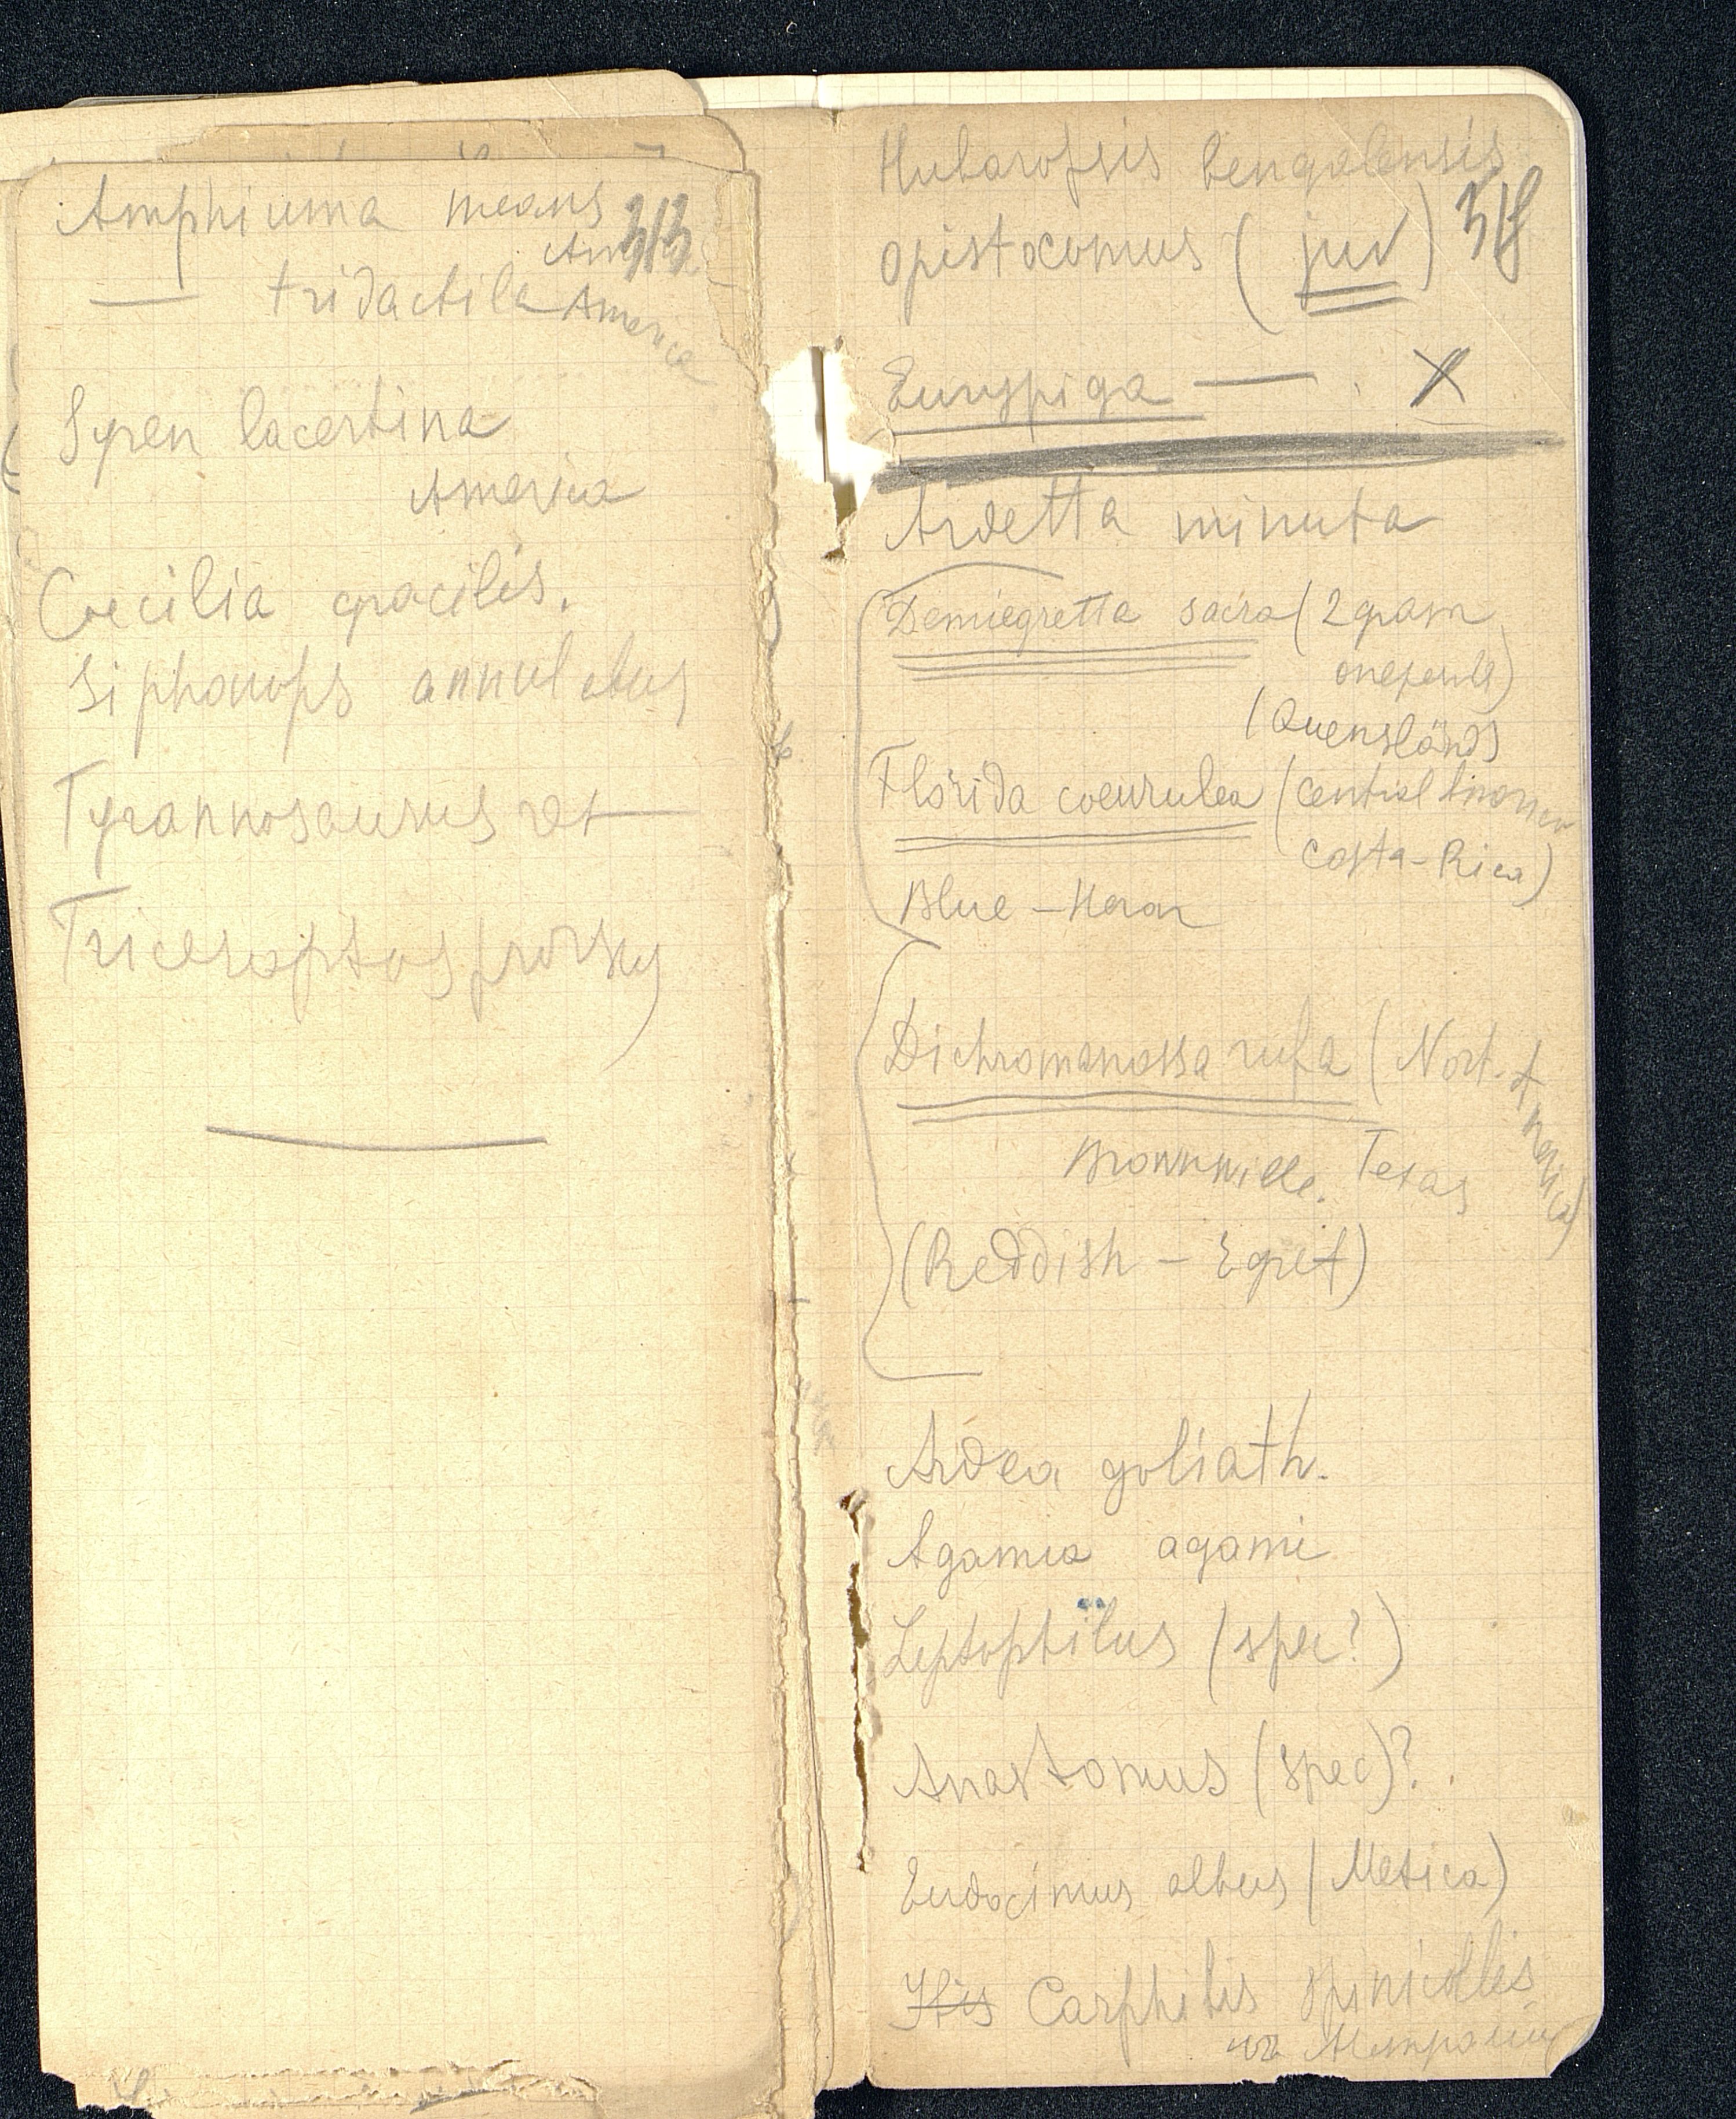 Amphiuma means
Am
313
— tridactila America
Syren lacertina
America
Coecilia gracilis.
Siphonops annulatus
Tyrannosaurus rex
Triceroptos prorsus
Hubaropsis bengalensis
opistocomus (juv)
Eurypiga — . X
Ardetta minuta
Demiegretta sacra (2 фазы
оперения)
(Quensländ)
Florida coeurulea (central America
Costa-Rica)
Blue-Heron
Dichromanassa rufa (Nort. America)
Brownwille. Texas
(Reddish - Egret)
Ardea goliath.
Agamia agami
Leptoptilus (spec?)
Anastomus (spec)?.
Eudocimus albus (Mexica)
Ibis Carphibis spinicollis
из Австралии